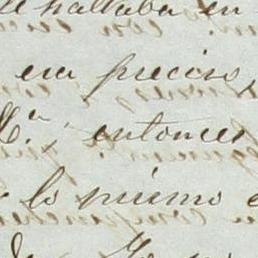 se hallaba en
era preciso,
M.ª, entonces
lo mismo